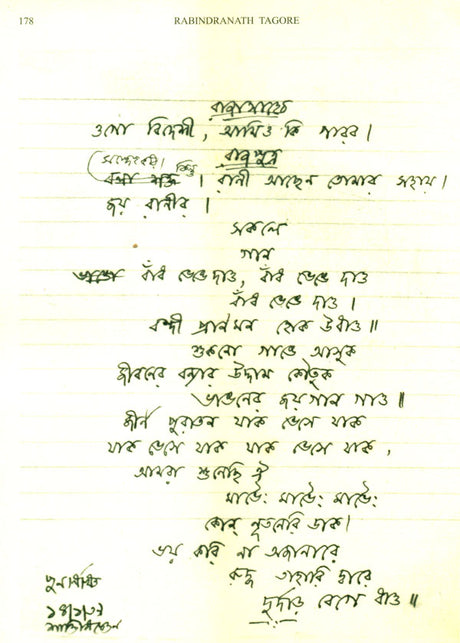 178 RABINDRANATH TAGORE
রাজাসাহেব
ওগো বিদেশী, আমিও কি পারব।
রাজপুত্র
সন্দেহ করি। কিন্তু
বলা শক্ত। রানী আছেন তোমার সহায়।
জয় রানীর।
সকলে
গান
বাঁধ ভেঙে দাও, বাঁধ ভেঙে দাও
বাঁধ ভেঙে দাও।
বন্দী প্রাণমন হোক উধাও॥
শুকনো গাঙে আসুক
জীবনের বন্যার উদ্দাম কৌতুক
ভাঙনের জয়গান গাও॥
জীর্ণ পুরাতন যাক ভেসে যাক
যাক ভেসে যাক যাক ভেসে যাক,
আমরা শুনেছি ঐ
মাভৈঃ মাভৈঃ মাভৈঃ
কোন্ নূতনেরি ডাক।
ভয় করি না অজানারে
রুদ্ধ তাহারি দ্বারে
দুর্দাড় বেগে ধাও॥
শান্তিনিকেতন